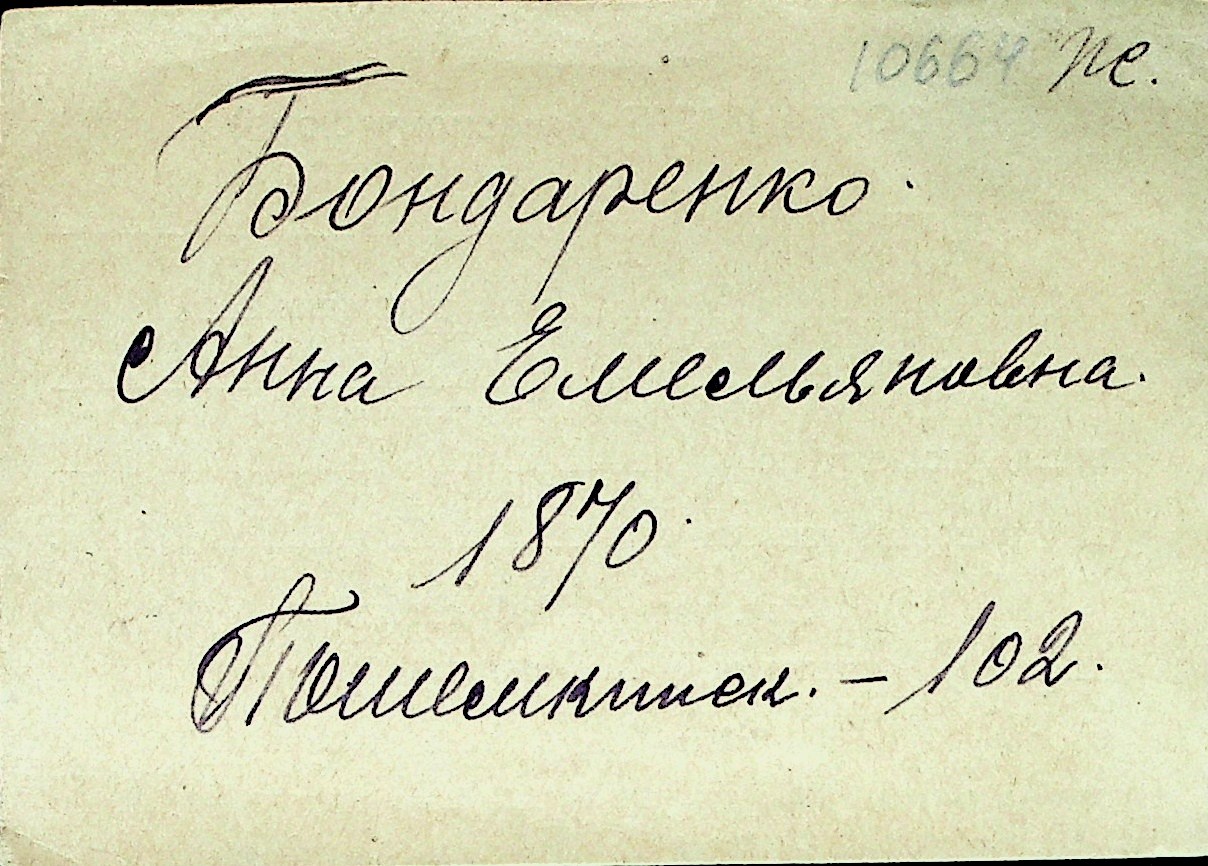 10664 пс.
Бондаренко.
Анна Емельяновна.
1870.
Потемкинск. – 102.